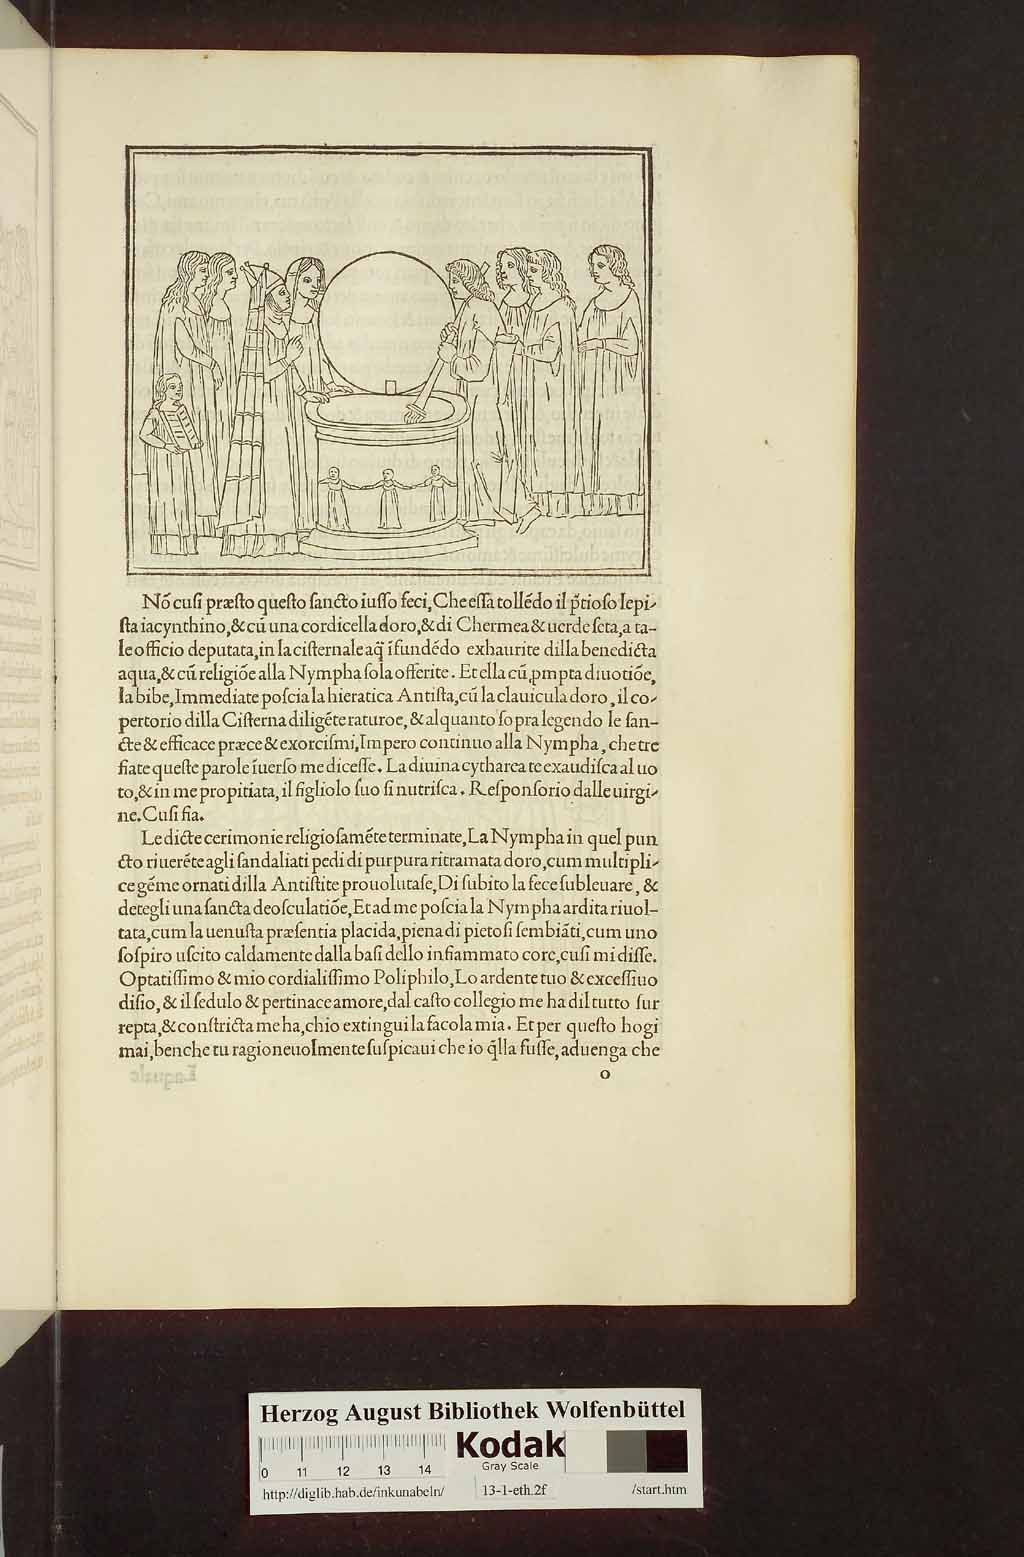 Nõ cusi præsto questo sancto iusso feci, Che essa tollẽdo il p̃tioso lepi-
sta iacynthino, & cũ una cordicella doro, & di Chermea & uerde seta, a ta-
le officio deputata, in la cisternale aq̃ ĩfundẽdo exhaurite dilla benedicta
aqua, & cũ religiõe alla Nympha sola offerite. Et ella cũ ꝓmpta diuotiõe,
la bibe, Immediate poscia la hieratica Antista, cũ la clauicula doro, il co-
pertorio dilla Cisterna diligẽte raturoe, & alquanto sopra legendo le san-
cte & efficace præce & exorcismi, Impero continuo alla Nympha, che tre
fiate queste parole ĩuerso me dicesse. La diuina cytharea te exaudisca al uo
to, & in me propitiata, il figliolo suo si nutrisca. Responsorio dalle uirgi-
ne. Cusi fia.
Le dicte cerimonie religiosamẽte terminate, La Nympha in quel pun
cto riuerẽte agli sandaliati pedi di purpura ritramata doro, cum multipli-
ce gẽme ornati dilla Antistite prouolutase, Di subito la fece subleuare, &
detegli una sancta deosculatiõe, Et ad me poscia la Nympha ardita riuol-
tata, cum la uenusta præsentia placida, piena di pietosi sembiãti, cum uno
sospiro uscito caldamente dalla basi dello infiammato core, cusi mi disse.
Optatissimo & mio cordialissimo Poliphilo, Lo ardente tuo & excessiuo
disio, & il sedulo & pertinace amore, dal casto collegio me ha dil tutto sur
repta, & constricta me ha, chio extingui la facola mia. Et per questo hogi
mai, benche tu ragioneuolmente suspicaui che io q̃lla fusse, aduenga che
o
Herzog August Bibliothek Wolfenbüttel
Kodak
Gray Scale
0 11 12 13 14
http://diglib.hab.de/inkunabeln/ 13-1-eth.2f /start.htm